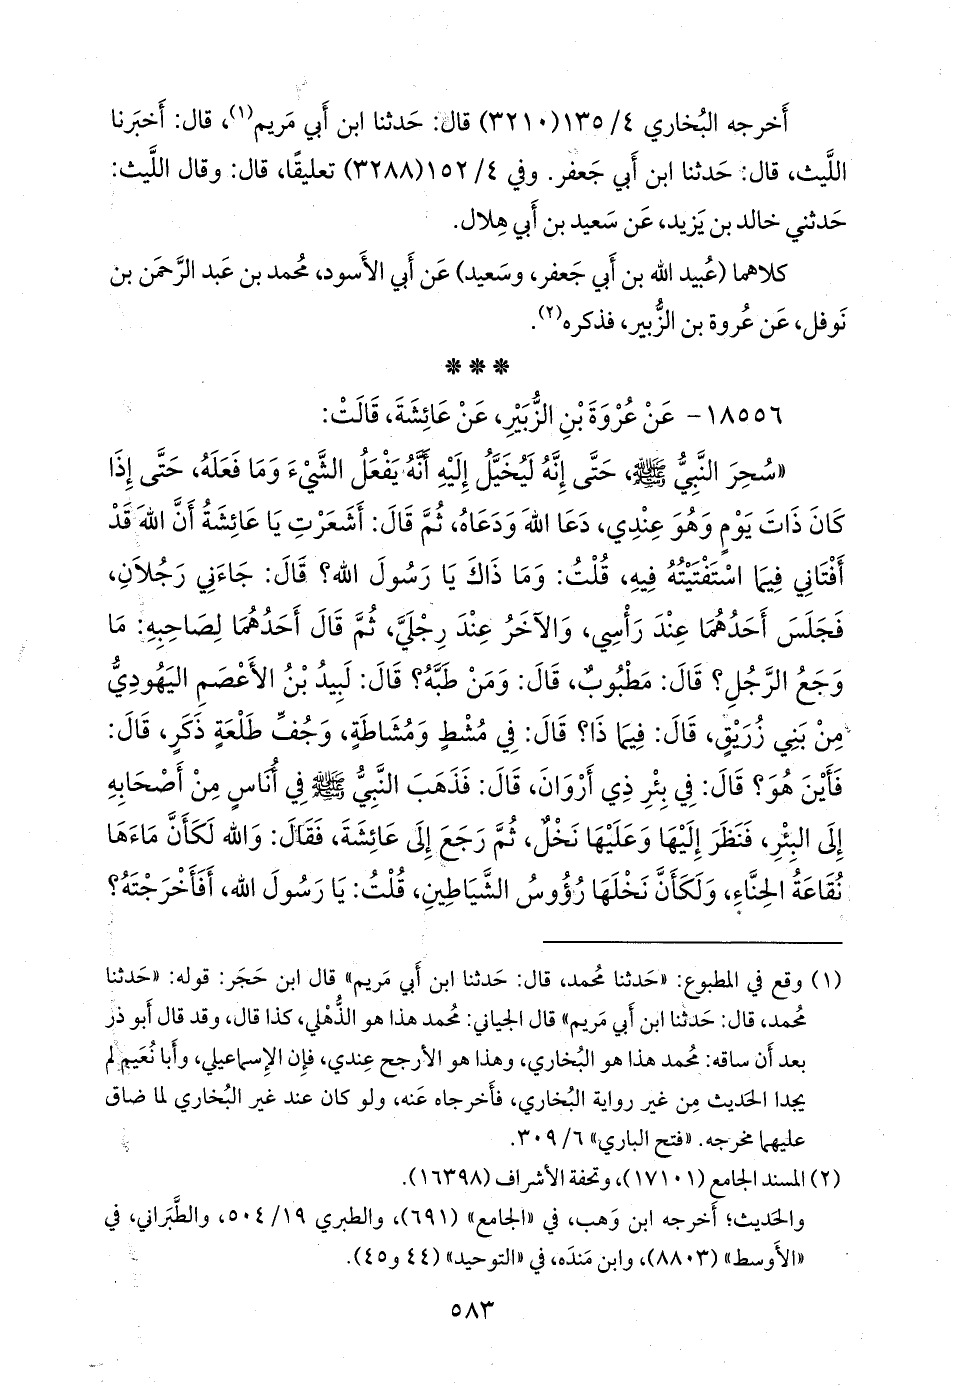 أَخرجه البُخاري ٤/ ١٣٥(٣٢١٠) قال: حَدثنا ابن أَبي مَريم(١)، قال: أَخبَرنا
اللَّيث، قال: حَدثنا ابن أَبي جَعفر. وفي ٤/ ١٥٢(٣٢٨٨) تعليقًا، قال: وقال الليث:
حَدثني خالد بن يَزيد، عَن سَعيد بن أَبي هِلال.
كلاهما (عُبيد الله بن أَبي جَعفر، وسَعيد) عَن أَبي الأَسود، مُحمد بن عَبد الرَّحمَن بن
نَوفل، عَن عُروة بن الزُّبير، فذكره(٢).
***
١٨٥٥٦- عَنْ عُرْوَةَ بْنِ الزُّبَيْرِ، عَنْ عَائِشَةَ، قَالَتْ:
«سُحِرَ النَّبِيُّ ﷺ، حَتَّى إِنَّهُ لَيُخَيَّلُ إِلَيْهِ أَنَّهُ يَفْعَلُ الشَّيْءَ وَمَا فَعَلَهُ، حَتَّى إِذَا
كَانَ ذَاتَ يَوْمٍ وَهُوَ عِنْدِي، دَعَا اللهَ وَدَعَاهُ، ثُمَّ قَالَ: أَشَعَرْتِ يَا عَائِشَةُ أَنَّ اللهَ قَدْ
أَفْتَانِي فِيمَا اسْتَفْتَيْتُهُ فِيهِ، قُلْتُ: وَمَا ذَاكَ يَا رَسُولَ الله؟ قَالَ: جَاءَنِي رَجُلاَنِ،
فَجَلَسَ أَحَدُهُمَا عِنْدَ رَأْسِي، وَالآخَرُ عِنْدَ رِجْلَيَّ، ثُمَّ قَالَ أَحَدُهُمَا لِصَاحِبِهِ: مَا
وَجَعُ الرَّجُلِ؟ قَالَ: مَطْبُوبٌ، قَالَ: وَمَنْ طَبَّهُ؟ قَالَ: لَبِيدُ بْنُ الأَعْصَمِ اليَهُودِيُّ
مِنْ بَنِي زُرَيْقٍ، قَالَ: فِيمَا ذَا؟ قَالَ: فِي مُشْطٍ وَمُشَاطَةٍ، وَجُفِّ طَلْعَةٍ ذَكَرٍ، قَالَ:
فَأَيْنَ هُوَ؟ قَالَ: فِي بِئْرِ ذِي أَرْوَانَ، قَالَ: فَذَهَبَ النَّبِيُّ ﷺ فِي أُنَاسٍ مِنْ أَصْحَابِهِ
إِلَى البِئْرِ، فَنَظَرَ إِلَيْهَا وَعَلَيْهَا نَخْلٌ، ثُمَّ رَجَعَ إِلَى عَائِشَةَ، فَقَالَ: وَالله لَكَأَنَّ مَاءَهَا
نُقَاعَةُ الحِنَّاءِ، وَلَكَأَنَّ نَخْلَهَا رُؤُوسُ الشَّيَاطِينِ، قُلْتُ: يَا رَسُولَ الله، أَفَأَخْرَجْتَهُ؟
(١) وقع في المطبوع: «حَدثنا مُحمد، قال: حَدثنا ابن أَبي مَريم» قال ابن حَجَر: قوله: «حَدثنا
مُحمد، قال: حَدثنا ابن أَبي مريم» قال الجياني: مُحمد هذا هو الذُّهْلي، كذا قال، وقد قال أَبو ذر
بعد أَن ساقه: مُحمد هذا هو البُخاري، وهذا هو الأَرجح عِندي، فإِن الإِسماعيلي، وأَبا نُعَيم لم
يجدا الحَديث مِن غير رواية البُخاري، فأَخرجاه عَنه، ولو كان عند غير البُخاري لما ضاق
عليهما مخرجه. «فتح الباري» ٦/ ٣٠٩.
(٢) المسند الجامع (١٧١٠١)، وتحفة الأشراف (١٦٣٩٨).
والحَديث؛ أَخرجه ابن وَهب، في «الجامع» (٦٩١)، والطبري ١٩/ ٥٠٤، والطَّبَراني، في
«الأَوسط» (٨٨٠٣)، وابن مَندَه، في «التوحيد» (٤٤ و٤٥).
٥٨٣